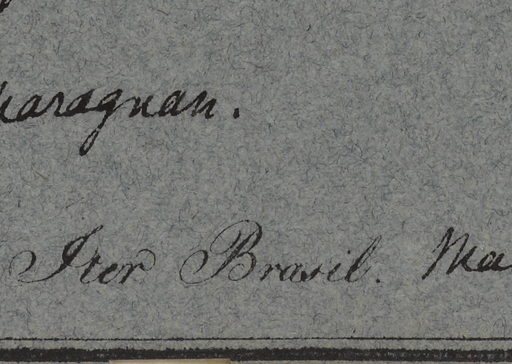 Maragnan.
Iter Brasil. Ma